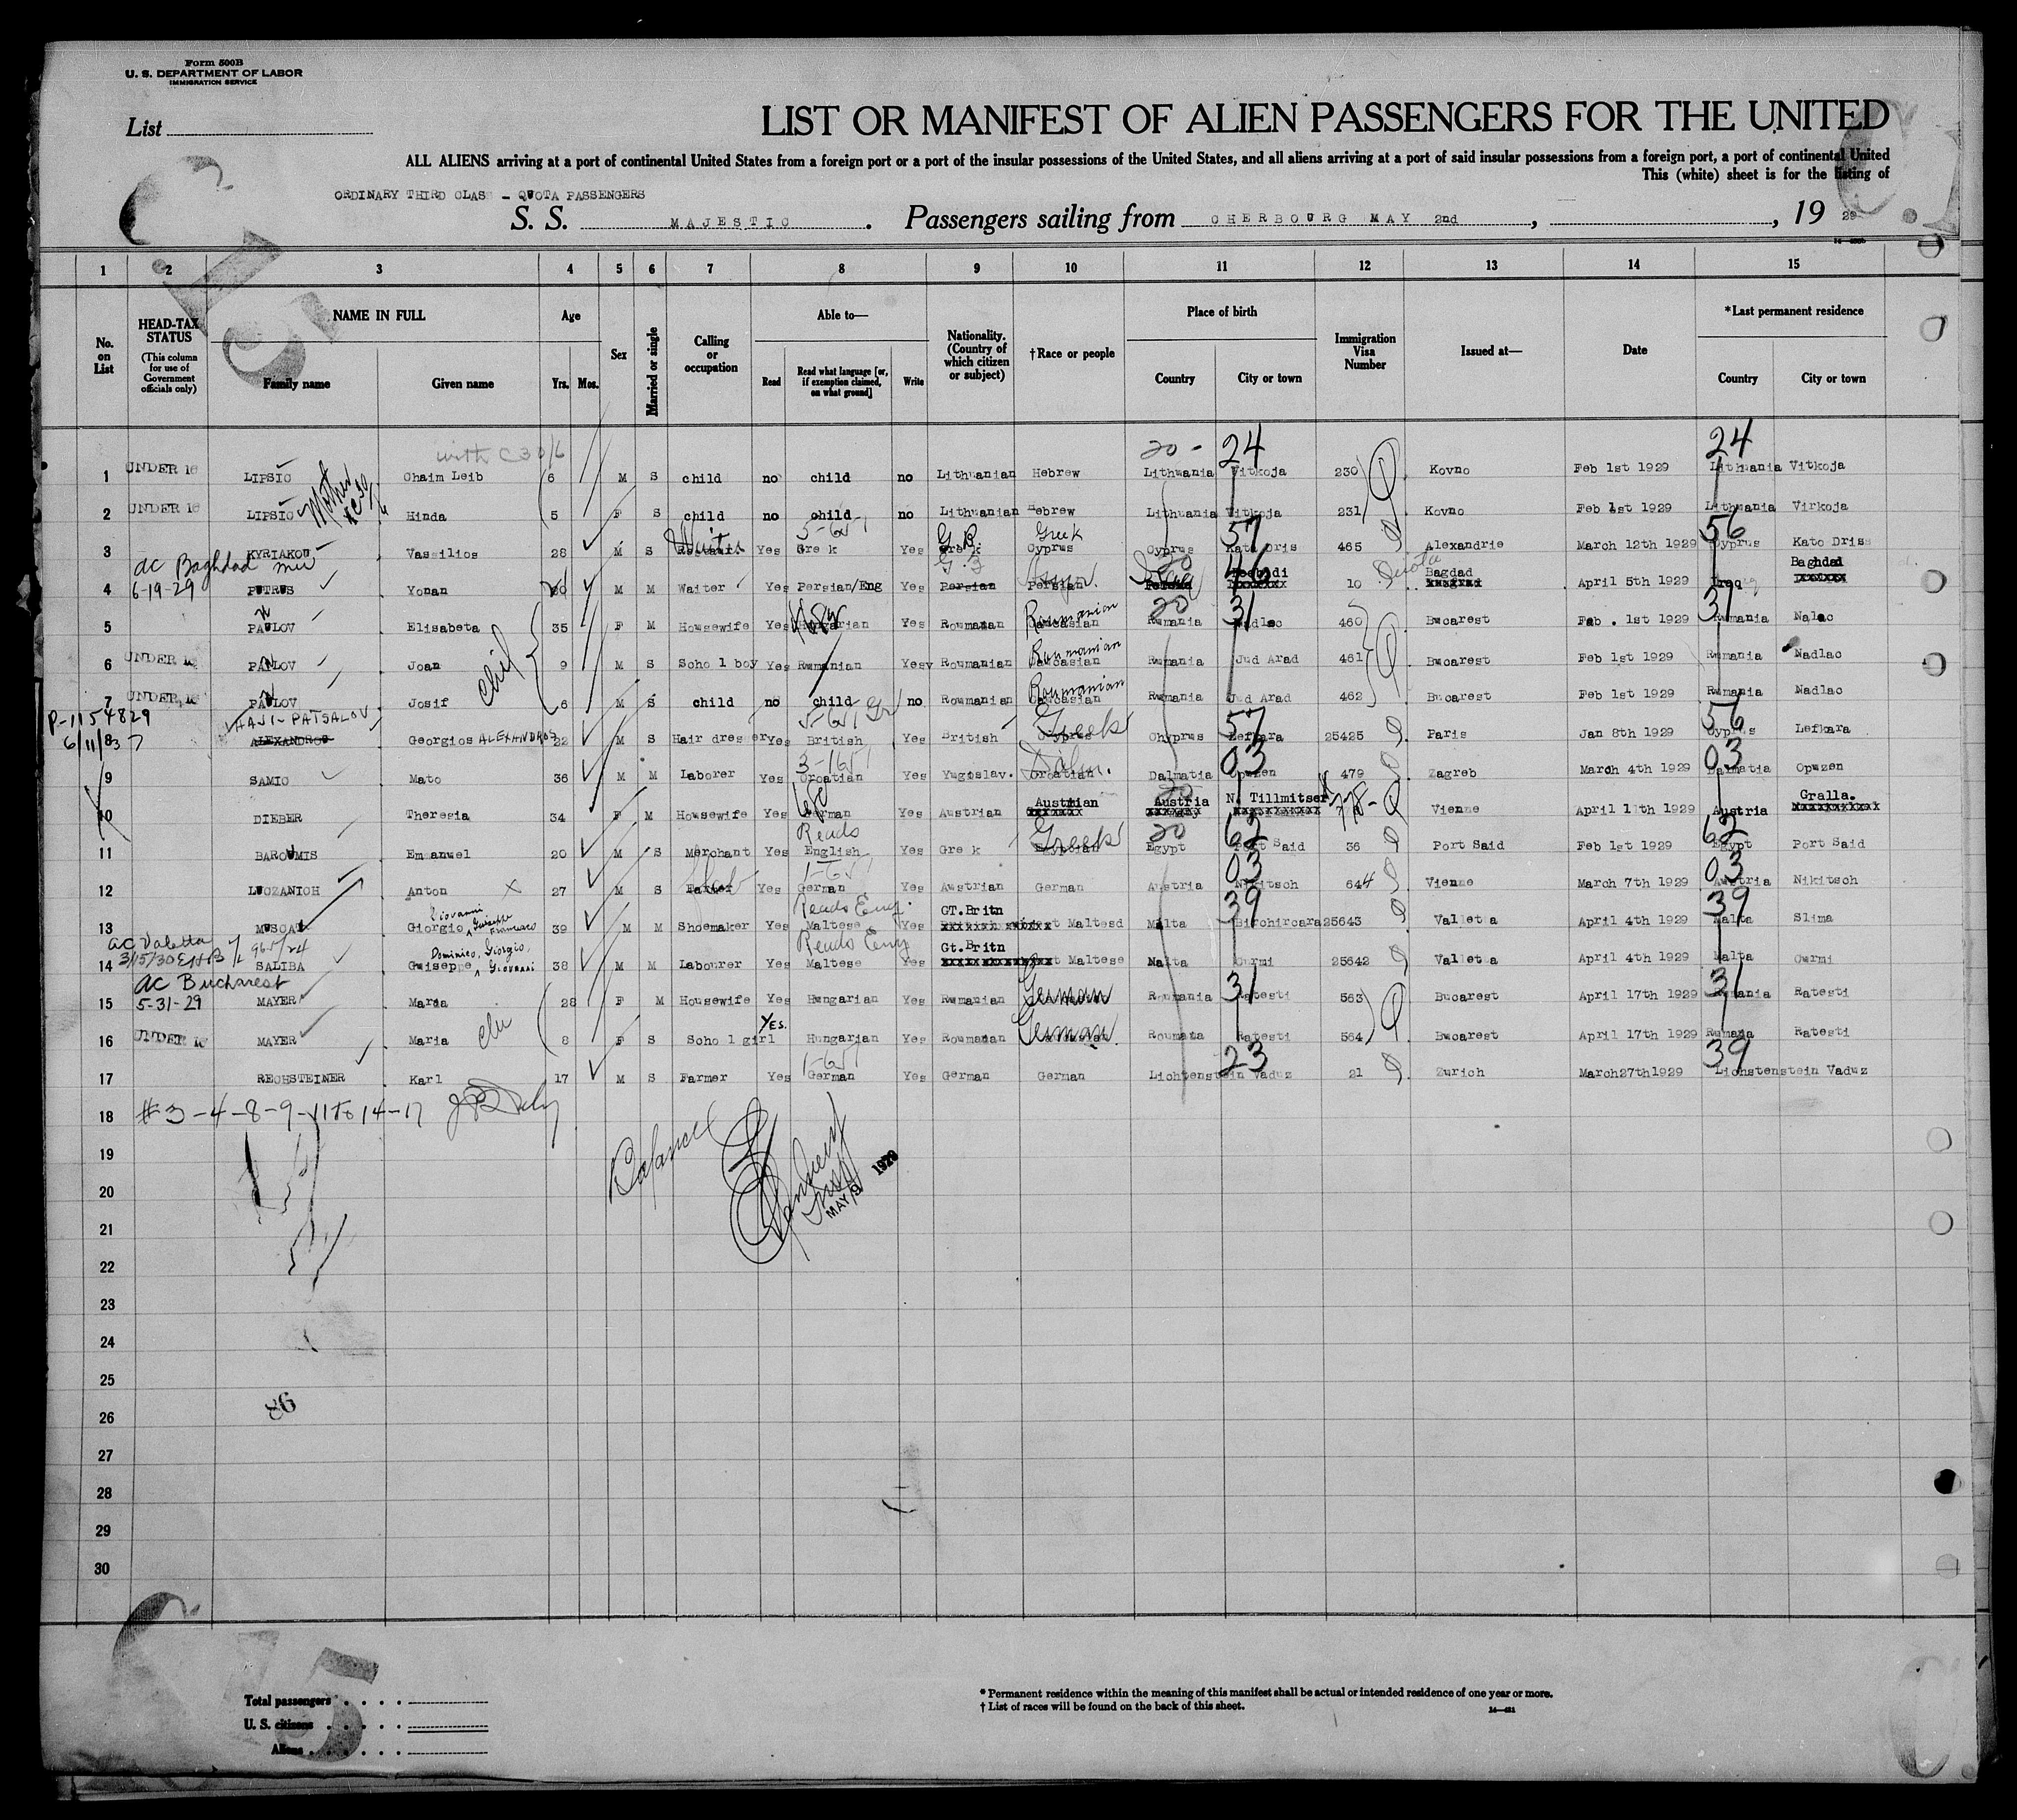 Form 500B
U. S. DEPARTMENT OF LABOR
IMMIGRATION SERVICE
List
LIST OR MANIFEST OF ALIEN PASSENGERS FOR THE UNITED
ALL ALIENS arriving at a port of continental United States from a foreign port or a port of the insular possessions of the United States, and all aliens arriving at a port of said insular possessions from a foreign port, a port of continental United
This (white) sheet is for the listing of
ORDINARY THIRD CLASS - QUOTA PASSENGERS
S. S. MAJESTIC. Passengers sailing from CHERBOURG MAY 2nd, , 19 29
1 2 3 4 5 6 7 8 9 10 11 12 13 14 15
No. on List
HEAD-TAX STATUS
(This column for use of Government officials only)
NAME IN FULL
Family name Given name
Age
Yrs. Mos.
Sex
Married or single
Calling or occupation
Able to—
Read
Read what language [or, if exemption claimed, on what ground]
Write
Nationality. (Country of which citizen or subject)
†Race or people
Place of birth
Country City or town
Immigration Visa Number
Issued at—
Date
*Last permanent residence
Country City or town
with C30/6
20 - 24 24
1 UNDER 16 LIPSIC Chaim Leib 6 M S child no child no Lithuanian Hebrew Lithuania Vitkoja 230 Kovno Feb 1st 1929 Lithuania Vitkoja
Mother
2 UNDER 16 LIPSIC Hinda 5 F S child no child no Lithuanian Hebrew Lithuania Vitkoja 231 Kovno Feb 1st 1929 Lithuania Virkoja
Waiter 5-651 G.B. Greek 57 56
3 KYRIAKOU Vassilios 28 M S Yes Gre k Yes Gre k Cyprus Cyprus Kato Dris 465 Alexandrie March 12th 1929 Cyprus Kato Driss
ac Baghdad
46 Quota Bagdad Baghdad
4 6-19-29 PUTRUS Yonan 30 M M Waiter Yes Persian/Eng Yes Persian Persian 10 April 5th 1929 Iraq
N 20 31 Roumanian 31
5 PAULOV Elisabeta 35 F M Housewife Yes Hungarian Yes Roumanan Caucasian Rumania Nadlac 460 Bucarest Feb . 1st 1929 Rumania Nalac
N Roumanian
6 UNDER 16 PAULOV Joan 9 M S Scho l boy Yes Rumanian Yes Roumanian Caucasian Rumania Jud Arad 461 Bucarest Feb 1st 1929 Rumania Nadlac
N Roumanian
7 UNDER 16 PAULOV Josif 6 M S child no child no Roumanian Caucasian Rumania Jud Arad 462 Bucarest Feb 1st 1929 Rumania Nadlac
P-1154829 HAJI-PATSALOV 5-651 Gr Greek 57 56
6/11/37 8 ALEXANDROU Georgios ALEXANDROS 22 M S Hair dresser Yes British Yes British Cyprus Chyprus Lefkara 25425 Paris Jan 8th 1929 Cyprus Lefkara
3-1651 Dalm. 03 03
9 SAMIC Mato 36 M M Laborer Yes Croatian Yes Yugoslav. Croatian Dalmatia Opuzen 479 Zagreb March 4th 1929 Dalmatia Opuzen
Austrian Austria N. Tillmitsen Gralla.
10 DIEBER Theresia 34 F M Housewife Yes German Yes Austrian 78 Vienne April 11th 1929 Austria
Reads Greek 20 62 62
11 BAROUMIS Emanuel 20 M S Merchant Yes English Yes Gre k Egyptian Egypt Port Said 36 Port Said Feb 1st 1929 Egypt Port Said
1-651 03 03
12 LUCZANICH Anton X 27 M S Farmer Yes German Yes Austrian German Austria Nikitsch 644 Vienne March 7th 1929 Austria Nikitsch
Giovanni Giuseppe Francesco Reads Eng. GT.Britn 39 39
13 MUSCAT Giorgio 39 M M Shoemaker Yes Maltese Yes Maltesd Malta Birchircara 25643 Valleta April 4th 1929 Malta Slima
ac Valetta
3/15/30 965/24 Dominico, Giorgio, Giovanni Reads Eng Gt.Britn
14 SALIBA Guiseppe 38 M M Labourer Yes Maltese Yes Maltese Malta Curmi 25642 Valleta April 4th 1929 Malta Curmi
ac Bucharest German 31 31
15 5-31-29 MAYER Maria 28 F M Housewife Yes Hungarian Yes Rumanian Roumania Ratesti 563 Bucarest April 17th 1929 Rumania Ratesti
YES. German
16 UNDER 16 MAYER Maria 8 F S Scho l girl Hungarian Yes Roumanan Roumata Ratesti 564 Bucarest April 17th 1929 Rumana Ratesti
1-651 23 39
17 RECHSTEINER Karl 17 M S Farmer Yes German Yes German German Lichtenstein Vaduz 21 Zurich March27th1929 Lichstenstein Vaduz
18 #3-4-8-9-11 to 14-17
19 Balance
20 MAY 9 1929
21
22
23
24
25
26 86
27
28
29
30
Total passengers
U. S. citizens
Aliens
* Permanent residence within the meaning of this manifest shall be actual or intended residence of one year or more.
† List of races will be found on the back of this sheet.